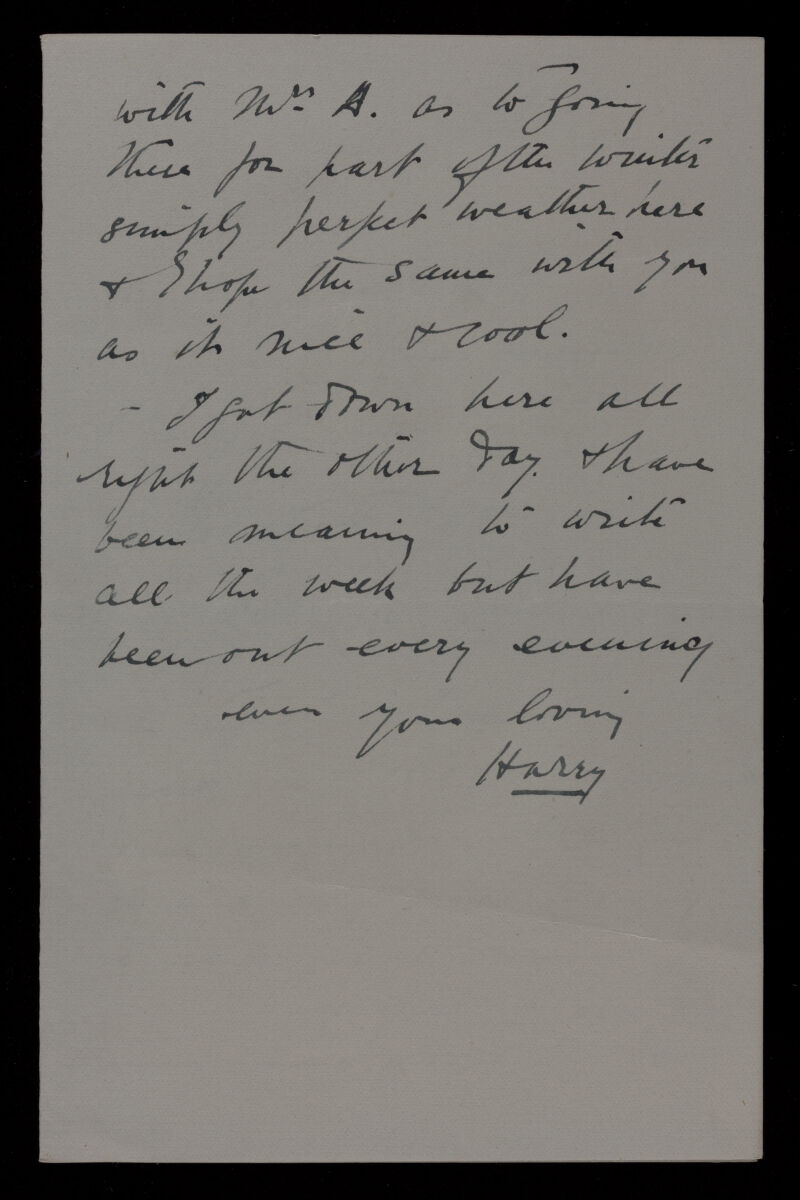 with Mrs A. as to going
there for part of the winter
simply perfect weather here
& I hope the same with you
as it is nice & cool.
- I got down here all
right the other day. & have
been meaning to write
all the week but have
been out every evening
ever your loving
Harry